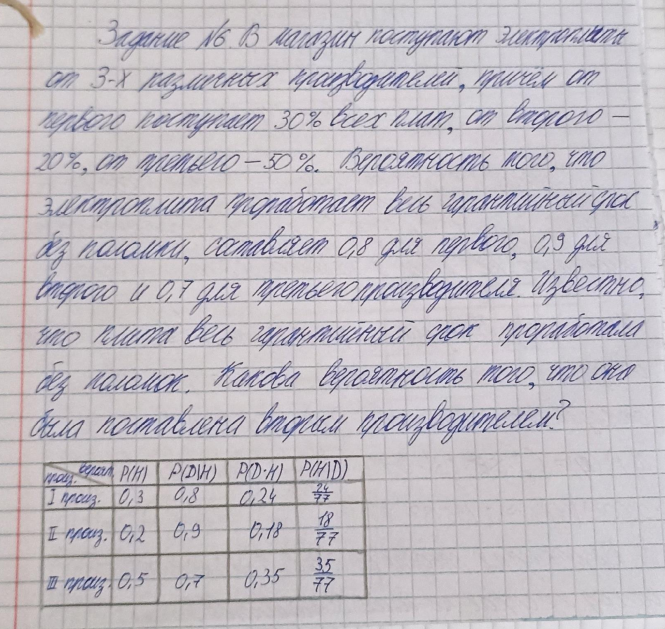 Задание №6. В магазин поступают электроплиты
от 3-х различных производителей, причём от
первого поступает 30% всех плит, от второго –
20%, от третьего – 50%. Вероятность того, что
электроплита проработает весь гарантийный срок
без поломки, составляет 0,8 для первого, 0,9 для
второго и 0,7 для третьего производителя. Известно,
что плита весь гарантийный срок проработала
без поломок. Какова вероятность того, что она
была поставлена вторым производителем?
произ. вероят. P(H) P(D|H) P(D·H) P(H|D)
I произ. 0,3 0,8 0,24 24/77
II произ. 0,2 0,9 0,18 18/77
III произ. 0,5 0,7 0,35 35/77